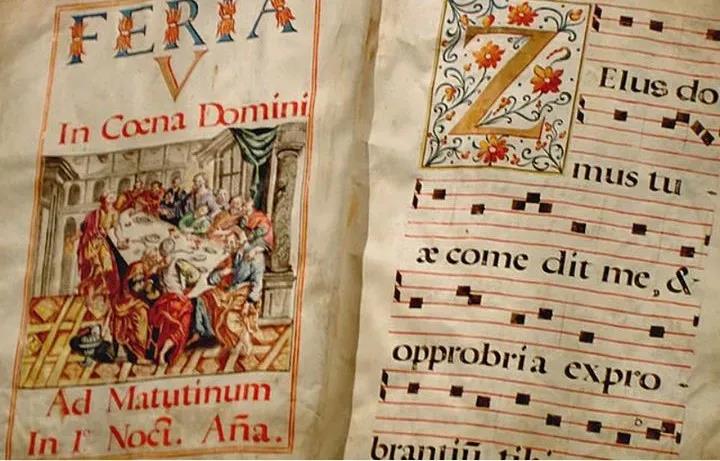 FERIA
V
In Cœna Domini
Ad Matutinum
In 1º Noct. Aña.
ZElus do
mus tu
æ come dit me, &
opprobria expro-
brantiũ tibi